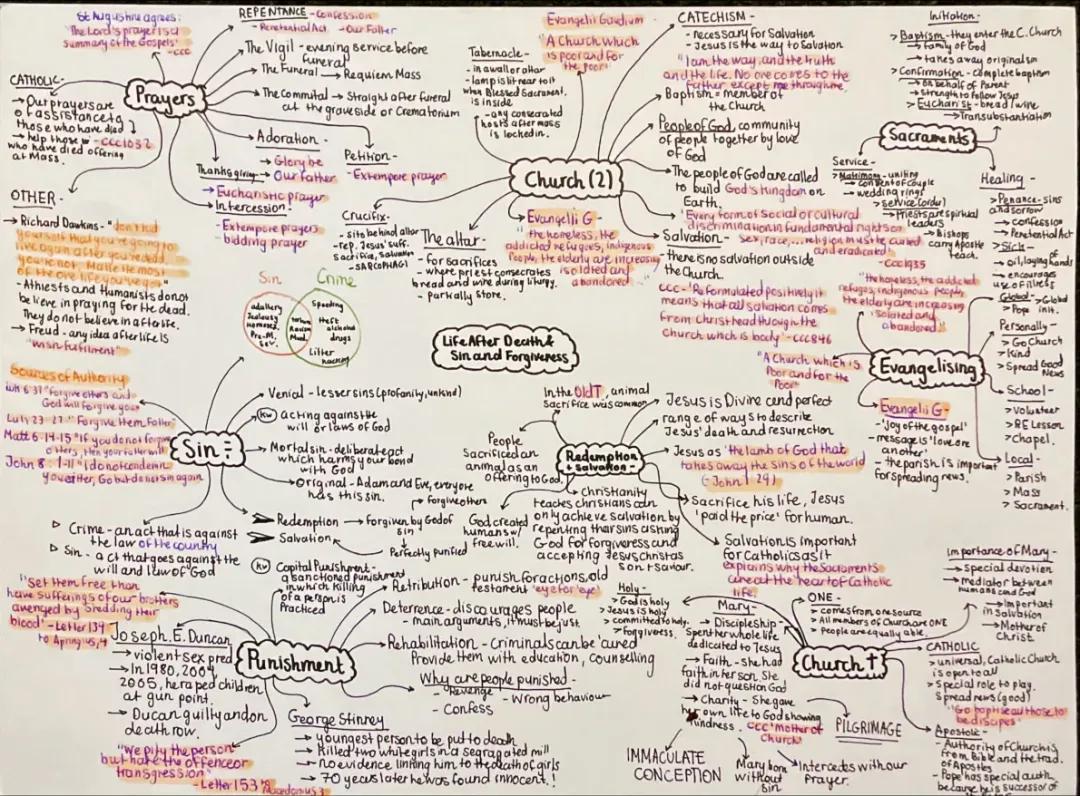 St Augustine agrees:
"The Lord's prayer is a
summary of the Gospels"
-CCC
REPENTANCE - Confession
- Penetential Act - Our Father
The Vigil - evening service before
funeral
The Funeral → Requiem Mass
The Committal → Straight after funeral
at the graveside or Crematorium
Prayers
CATHOLIC -
→ Our prayers are
of assistance to
those who have died
→ help those - CCC1032
who have died offering
at Mass.
Adoration -
→ Glory be
Thanksgiving → Our Father
→ Eucharistic prayer
Intercession!
- Extempore prayers
- bidding prayer
Petition -
- Extempore prayer
OTHER -
→ Richard Dawkins - "don't kid
yourself that you're going to
live again after you're dead,
you're not. Make the most
of the one life you've got"
- Athiests and Humanists do not
believe in praying for the dead.
They do not believe in afterlife.
- Freud - any idea after life is
"wish fulfilment"
Sin
Crime
adultery
Jealousy
Homosex.
Pre-M.
Sex.
Racism
Speeding
theft
alcohol
drugs
Litter
hacking
Life After Death &
Sin and Forgiveness
Tabernacle -
- in a wall or altar
- lamp is lit near to it
when Blessed Sacrament
is inside
- any consecrated
hosts after mass
is locked in.
Evangelii Gaudium -
"A Church which
is poor and for
the poor"
CATECHISM -
- necessary for Salvation
- Jesus is the way to Salvation
"I am the way, and the truth
and the life. No one comes to the
Father except me through me
Baptism = member of
the Church
People of God, community
of people together by love
of God
The people of God are called
to build God's Kingdom on
Earth.
"Every form of social or cultural
discrimination in fundamental rights on
sex, race, ... religion must be curbed
and eradicated"
-CCC1935
Salvation -
- there is no salvation outside
the Church.
CCC - 'Reformulated positively it
means that all salvation comes
from Christ head through the
Church which is body' - CCC846
Church (2)
Crucifix -
- sits behind altar
- rep. Jesus' suff.
sacrifice, salvation
- SARCOPHAGI
The altar -
- for sacrifices
- where priest consecrates
bread and wine during liturgy.
- partially store.
Evangelii G -
"the homeless, the
addicted refugees, indigenous
people, the elderly are increasing
isolated and
abandoned"
Initiation -
> Baptism - they enter the C. Church
→ family of God
→ takes away original sin
> Confirmation - complete baptism
→ on behalf of Parent
→ strength to follow Jesus
> Eucharist - bread/wine
→ Transubstantiation
Sacraments
Service -
> Matrimony - uniting
→ consent of couple
→ wedding rings
> service (order)
→ Priests are spiritual
leaders
→ Bishops
carry Apostle
teach.
Healing -
> Penance - sins
and sorrow
→ confession
→ Penetential Act
> Sick -
→ oil, laying of hands
→ encourages
use of illness
"the homeless, the addicted
refugees, indigenous people,
the elderly are increasing
isolated and
abandoned"
"A Church which is
Poor and for the
Poor"
Evangelising
Global - > Global
> Pope init.
Personally -
> Go Church
> Kind
> Spread Good
News
School -
> Volunteer
> RE Lesson
> Chapel.
Local -
> Parish
> Mass
> Sacrament.
Evangelii G -
- 'Joy of the gospel'
- message is 'love one
another'
- the parish is important
for spreading news.
Sources of Authority
Luk 6:37 "forgive others and
God will forgive you"
Luk 23-27 "Forgive them Father"
Matt 6:14-15 "if you do not forgive
others, then your father will
John 8:1-11 "I do not condemn
you either, Go but do not sin again
Sin -
Venial - lesser sins (profanity, unkind)
(KW) acting against the
will or laws of God
Mortal sin - deliberate act
which harms your bond
with God
Original - Adam and Eve, everyone
has this sin.
Redemption → Forgiven by God of
sin
→ forgive others
Salvation
Perfectly purified
▷ Crime - an act that is against
the law of the country
▷ Sin - act that goes against the
will and law of God
In the Old T, animal
sacrifice was common
People
sacrificed an
animal as an
offering to God.
Redemption
+ Salvation -
Jesus is Divine and perfect
range of ways to describe
Jesus' death and resurrection.
Jesus as 'the lamb of God that
takes away the sins of the world
(John 1:29)
Sacrifice his life, Jesus
'paid the price' for human.
Salvation is important
for Catholics as it
explains why the Sacraments
are at the heart of Catholic
life.
God created
humans w/
free will.
Christianity
teaches christians can
only achieve salvation by
repenting their sins asking
God for forgiveness and
accepting Jesus christ as
son + saviour.
"Set them free than
have sufferings of our brothers
avenged by shedding their
blood" - Letter 134
to Apringius, 4
(KW) Capital Punishment -
a sanctioned punishment
in which killing
of a person is
Practiced
Punishment
Retribution - punish for actions, old
testament 'eye for eye'
Deterrence - discourages people
- main arguments, it must be just.
Rehabilitation - Criminals can be 'cured'
Provide them with education, counselling
Why are people punished -
- Revenge
- Wrong behaviour
- Confess
Joseph. E. Duncan
→ violent sex pred
→ In 1980, 2004,
2005, he raped children
at gun point.
→ Ducan guilty and on
death row.
"We pity the person
but hate the offence or
transgression"
- Letter 153
George Stinney
→ youngest person to be put to death
→ Killed two white girls in a segragated mill
→ no evidence linking him to the death of girls
→ 70 years later he was found innocent!
Holy -
> God is holy
> Jesus is holy
> committed to holy.
> forgiveness.
Church ✝
ONE -
> comes from one source
> All members of Church are ONE
> People are equally able.
Mary -
→ Discipleship -
Spent her whole life
dedicated to Jesus
→ Faith - she had
faith in her son. She
did not question God
→ Charity - She gave
her own life to God showing
kindness. CCC 'Mother of
Church'
IMMACULATE
CONCEPTION
Mary born
without
sin
Intercedes with our
Prayer.
PILGRIMAGE
Importance of Mary -
→ special devotion
→ mediator between
humans and God
→ important
in salvation
→ Mother of
Christ
CATHOLIC
> universal, Catholic Church
is open to all
> special role to play.
Spread news (good)
"Go baptise all those to
be disciples"
Apostolic -
- Authority of Church is
from Bible and the trad.
of Apostles
- Pope has special auth.
because he is successor of